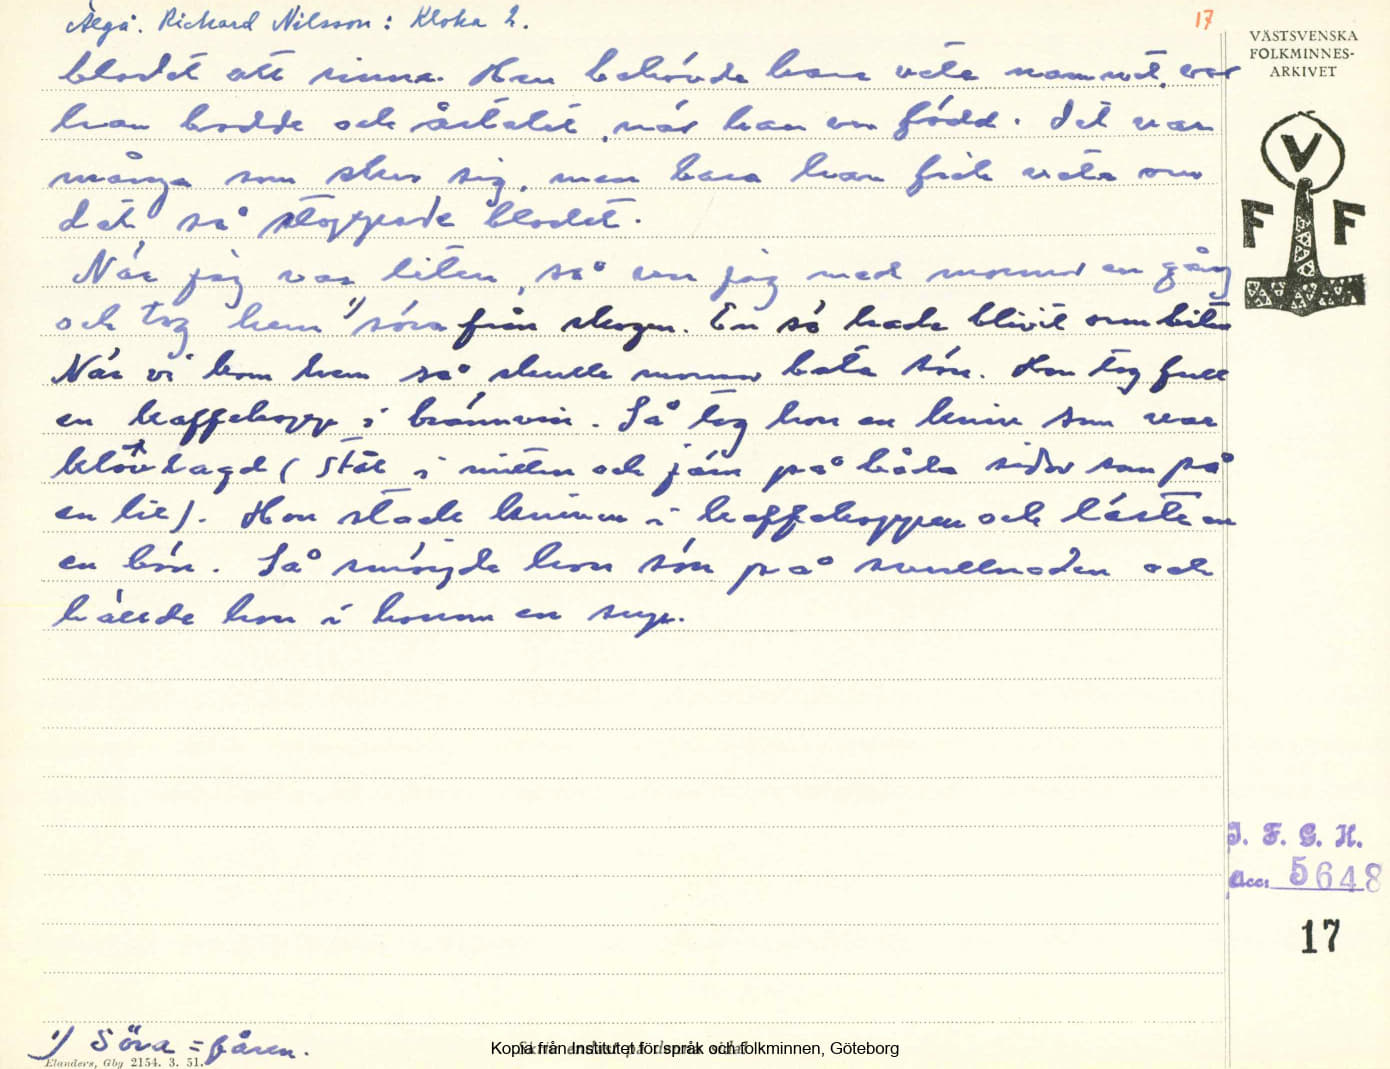 Älgå. Richard Nilsson: Kloka 2.
17
VÄSTSVENSKA
FOLKMINNES-
ARKIVET
V
F F
blodet att rinna. Han behövde bara veta namnet, var
han bodde och årtalet, när han var född. Det var
många som skar sig, men bara han fick veta om
det så stoppade blodet.
När jag var liten, så var jag med mormor en gång
och tog hem 1) söra från skogen. En sö hade blivit ormbiten
När vi kom hem så skulle mormor bota sön. Hon tog full
en kaffekopp i brännvin. Så tog hon en kniv som var
klövlagd (stål i mitten och järn på båda sidor som på
en lie). Hon stack kniven i kaffekoppen och läste en
en bön. Så smörjde hon sön på svullnaden och
hällde hon i honom en sup.
I. F. G. H.
Acc: 5648
17
1) Söra = fåren.
Elanders, Gby 2154. 3. 51.
Kopia från Institutet för språk och folkminnen, Göteborg